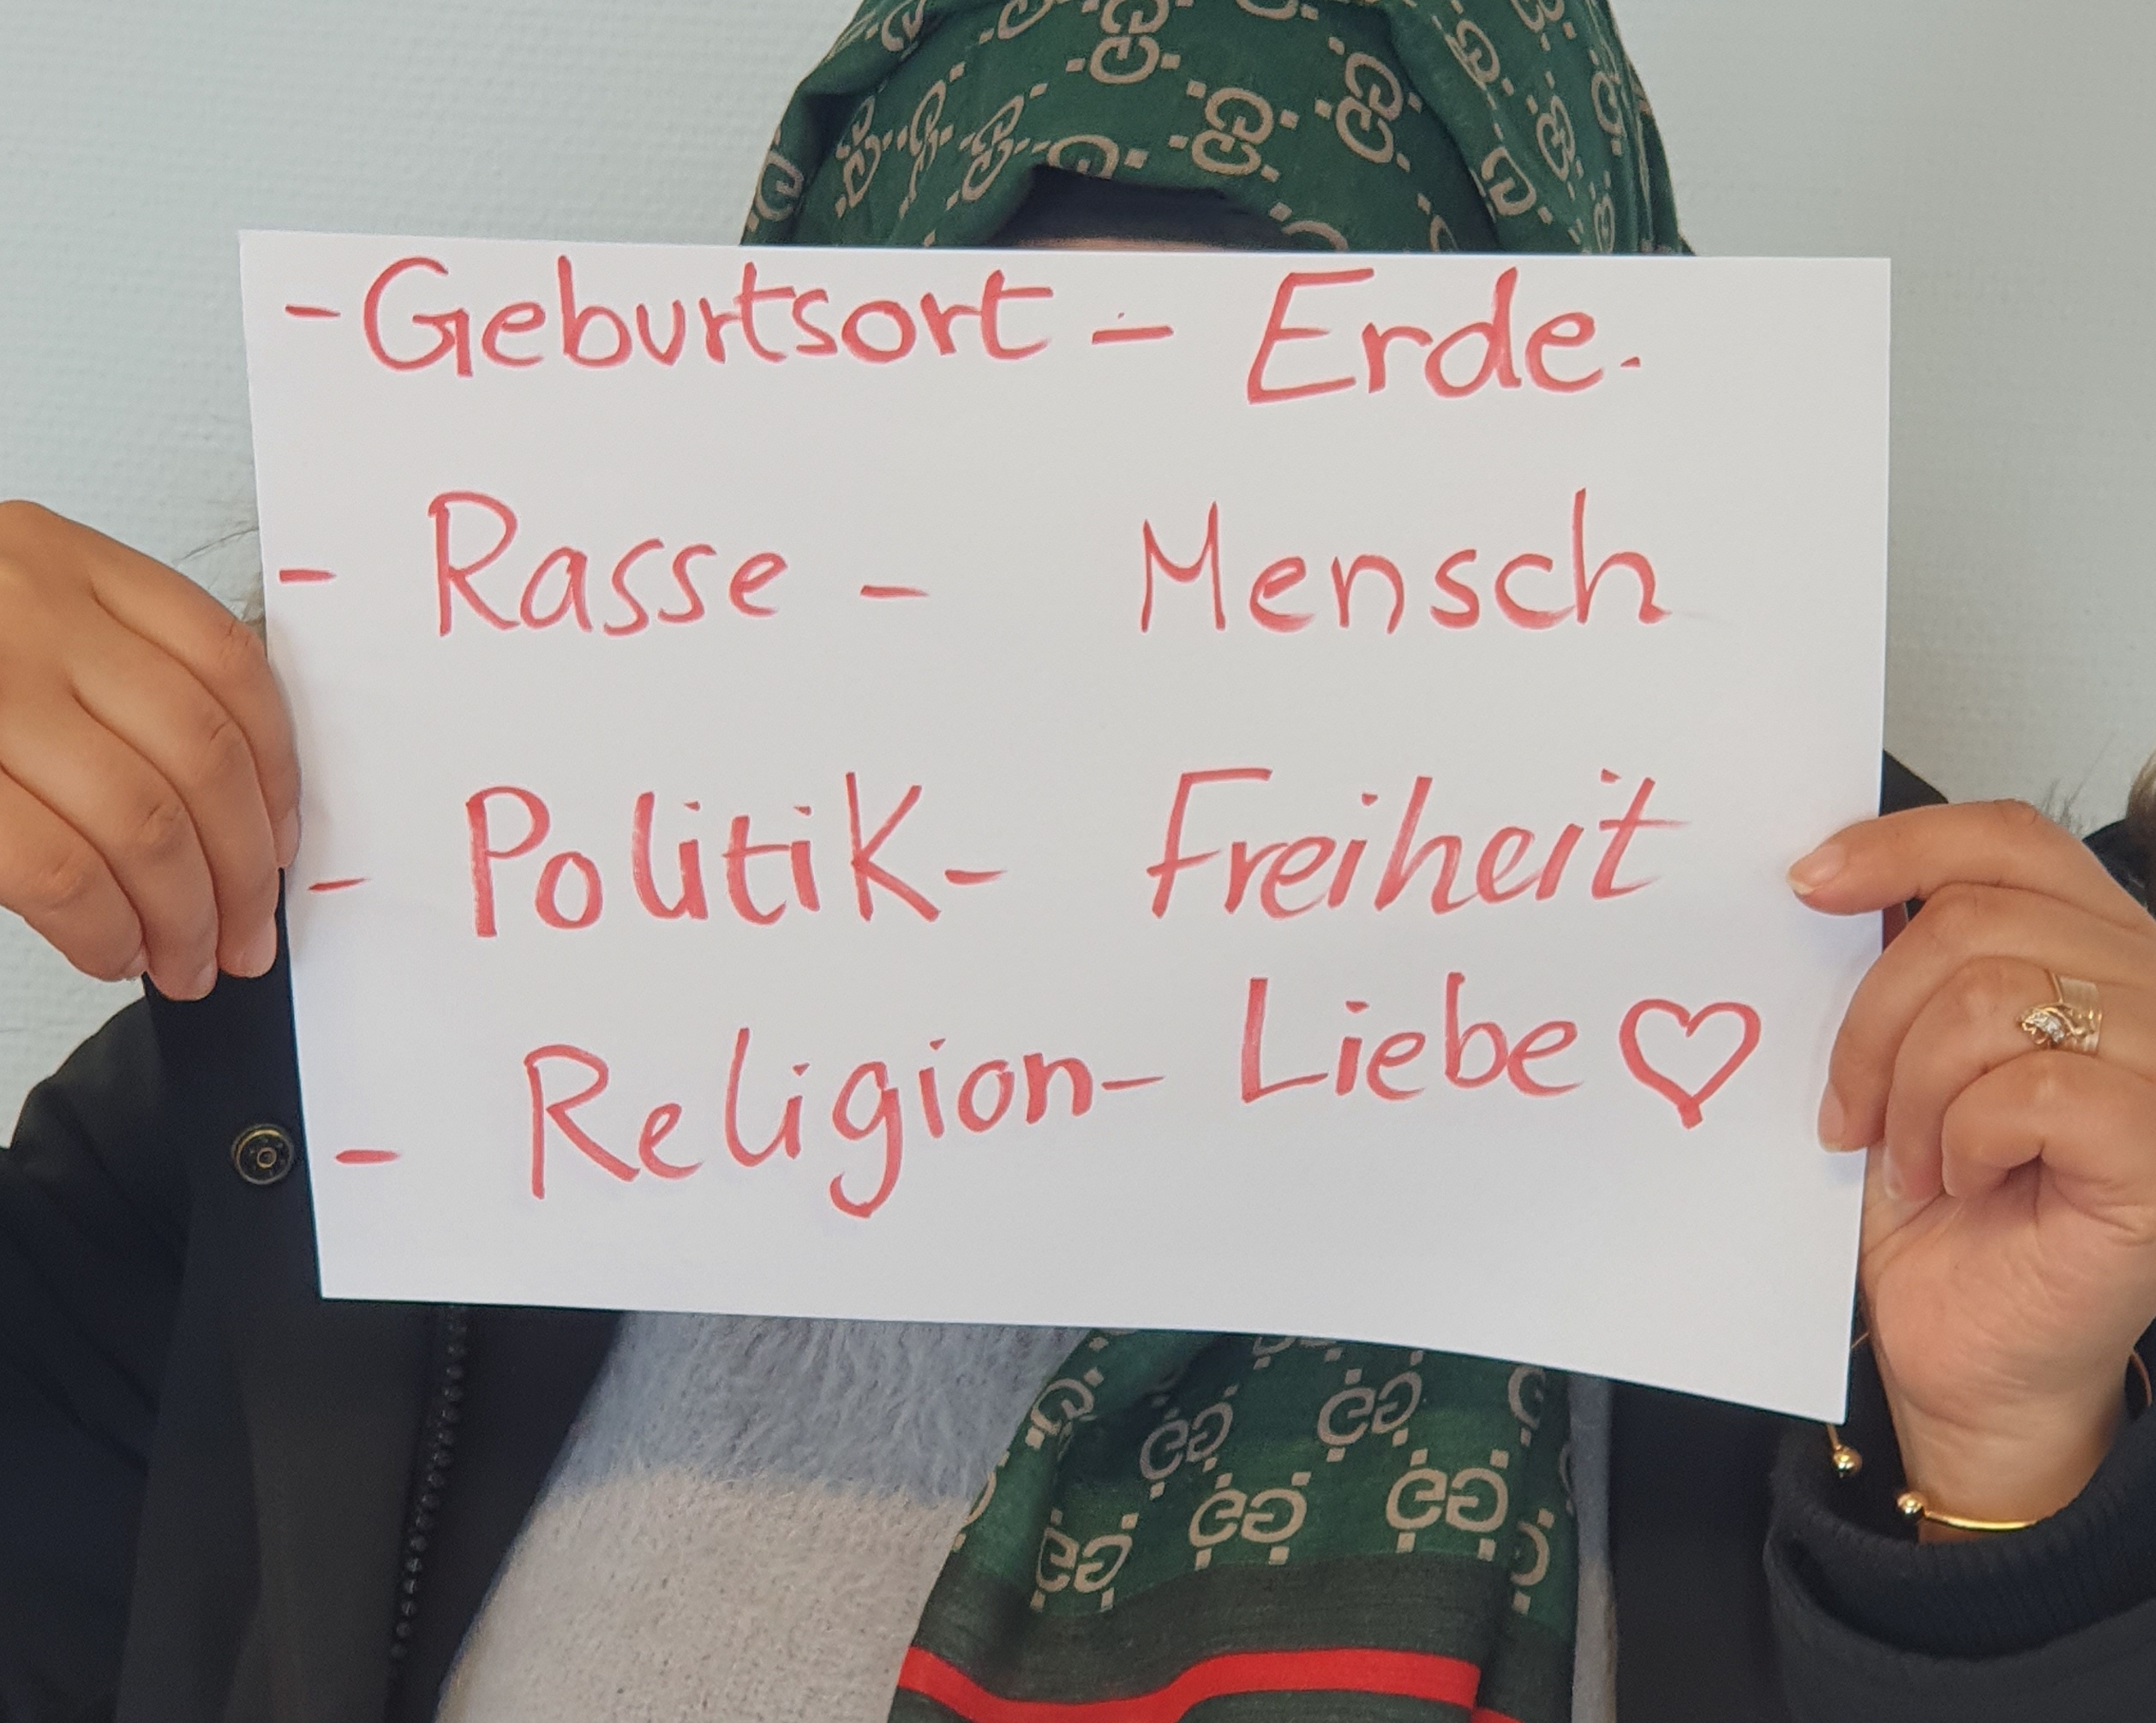 - Geburtsort - Erde.
- Rasse - Mensch
- Politik - Freiheit
- Religion - Liebe ♡